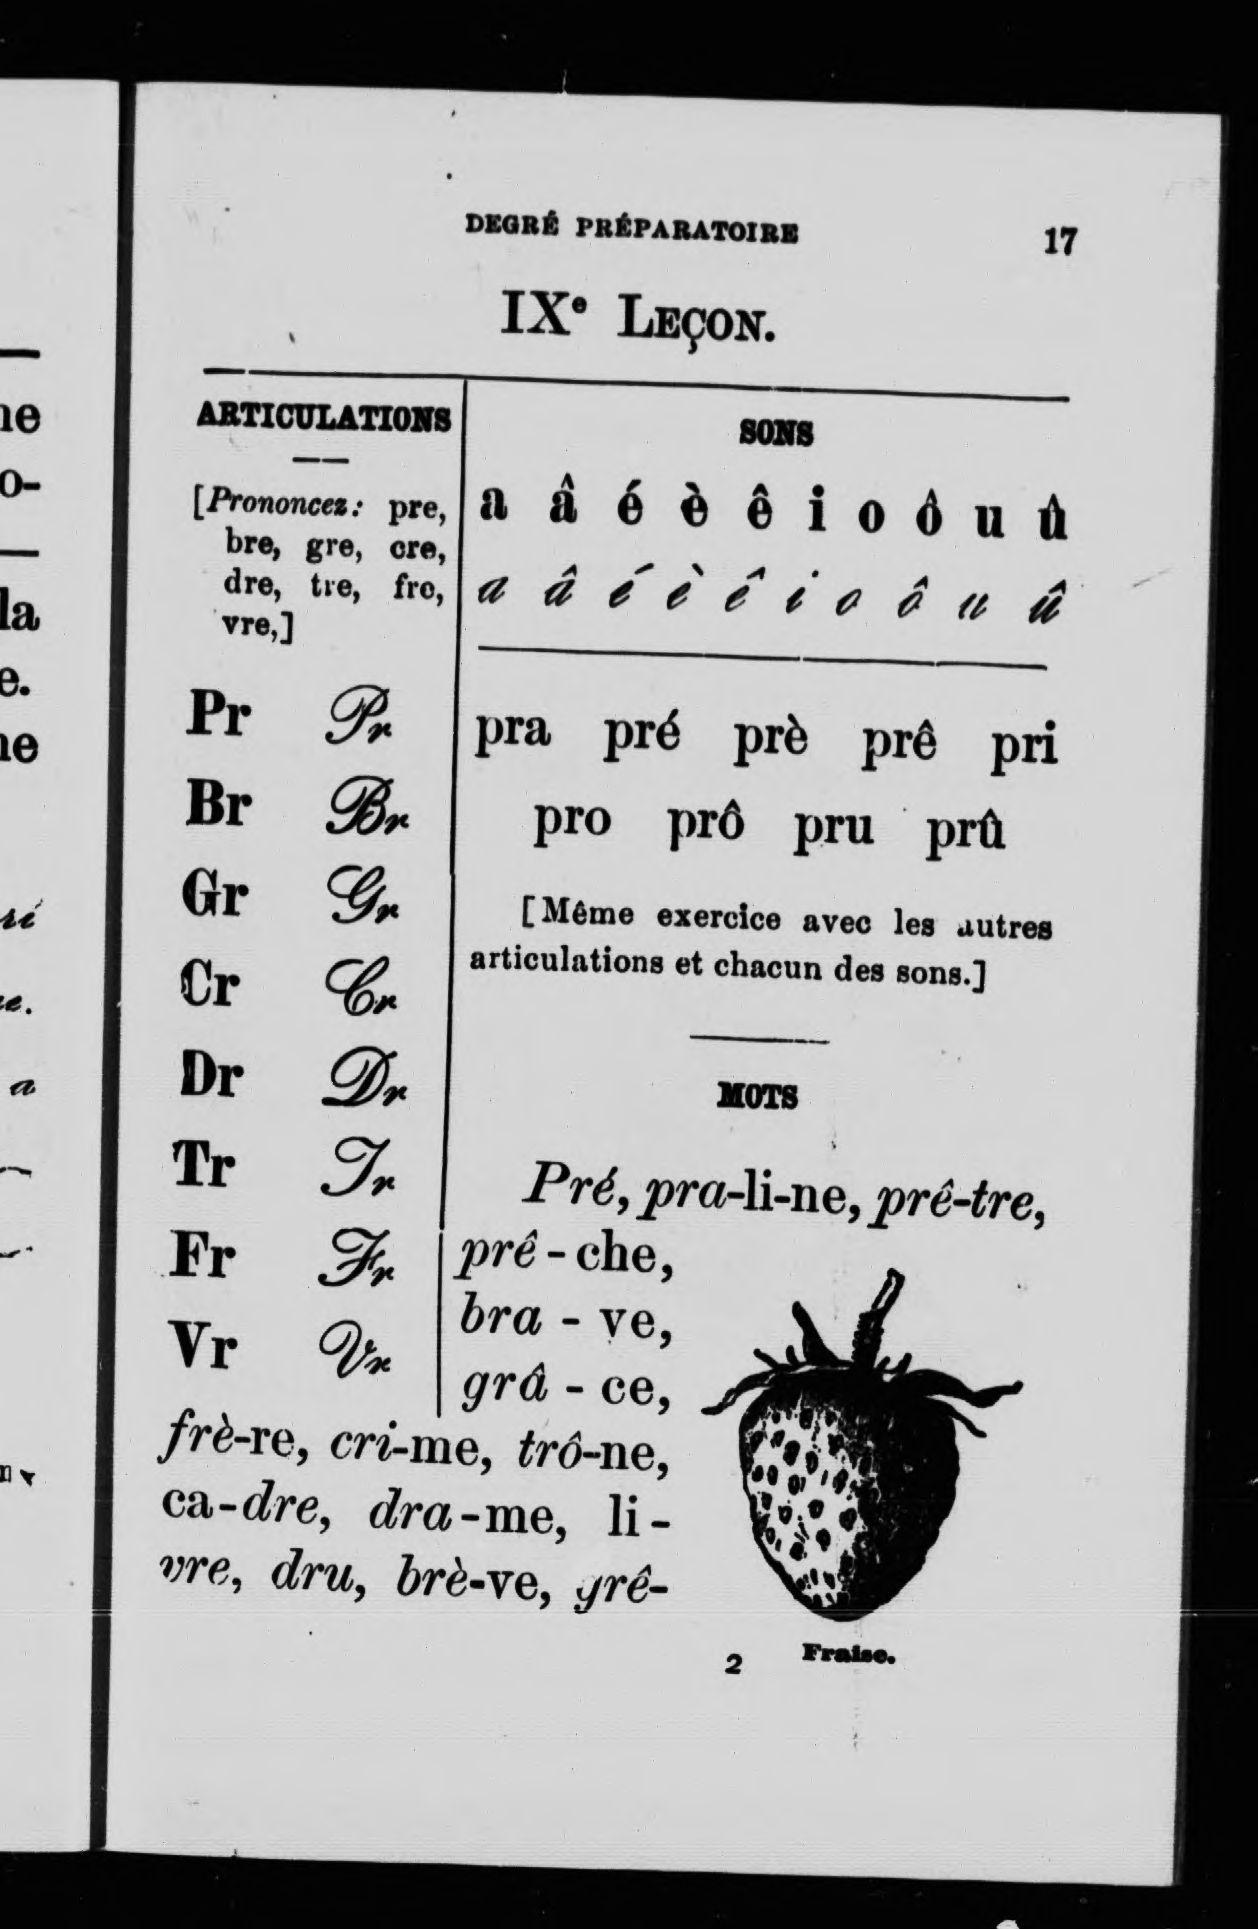 DEGRÉ PRÉPARATOIRE 17
IXe LEÇON.
ARTICULATIONS
[Prononcez: pre,
bre, gre, cre,
dre, tre, fre,
vre,]
Pr Pr
Br Br
Gr Gr
Cr Cr
Dr Dr
Tr Tr
Fr Fr
Vr Vr
SONS
a â é è ê i o ô u û
a â é è ê i o ô u û
pra pré prè prê pri
pro prô pru prû
[Même exercice avec les autres
articulations et chacun des sons.]
MOTS
Pré, pra-li-ne, prê-tre,
prê-che,
bra-ve,
grâ-ce,
frè-re, cri-me, trô-ne,
ca-dre, dra-me, li-
vre, dru, brè-ve, grê-
2 Fraise.